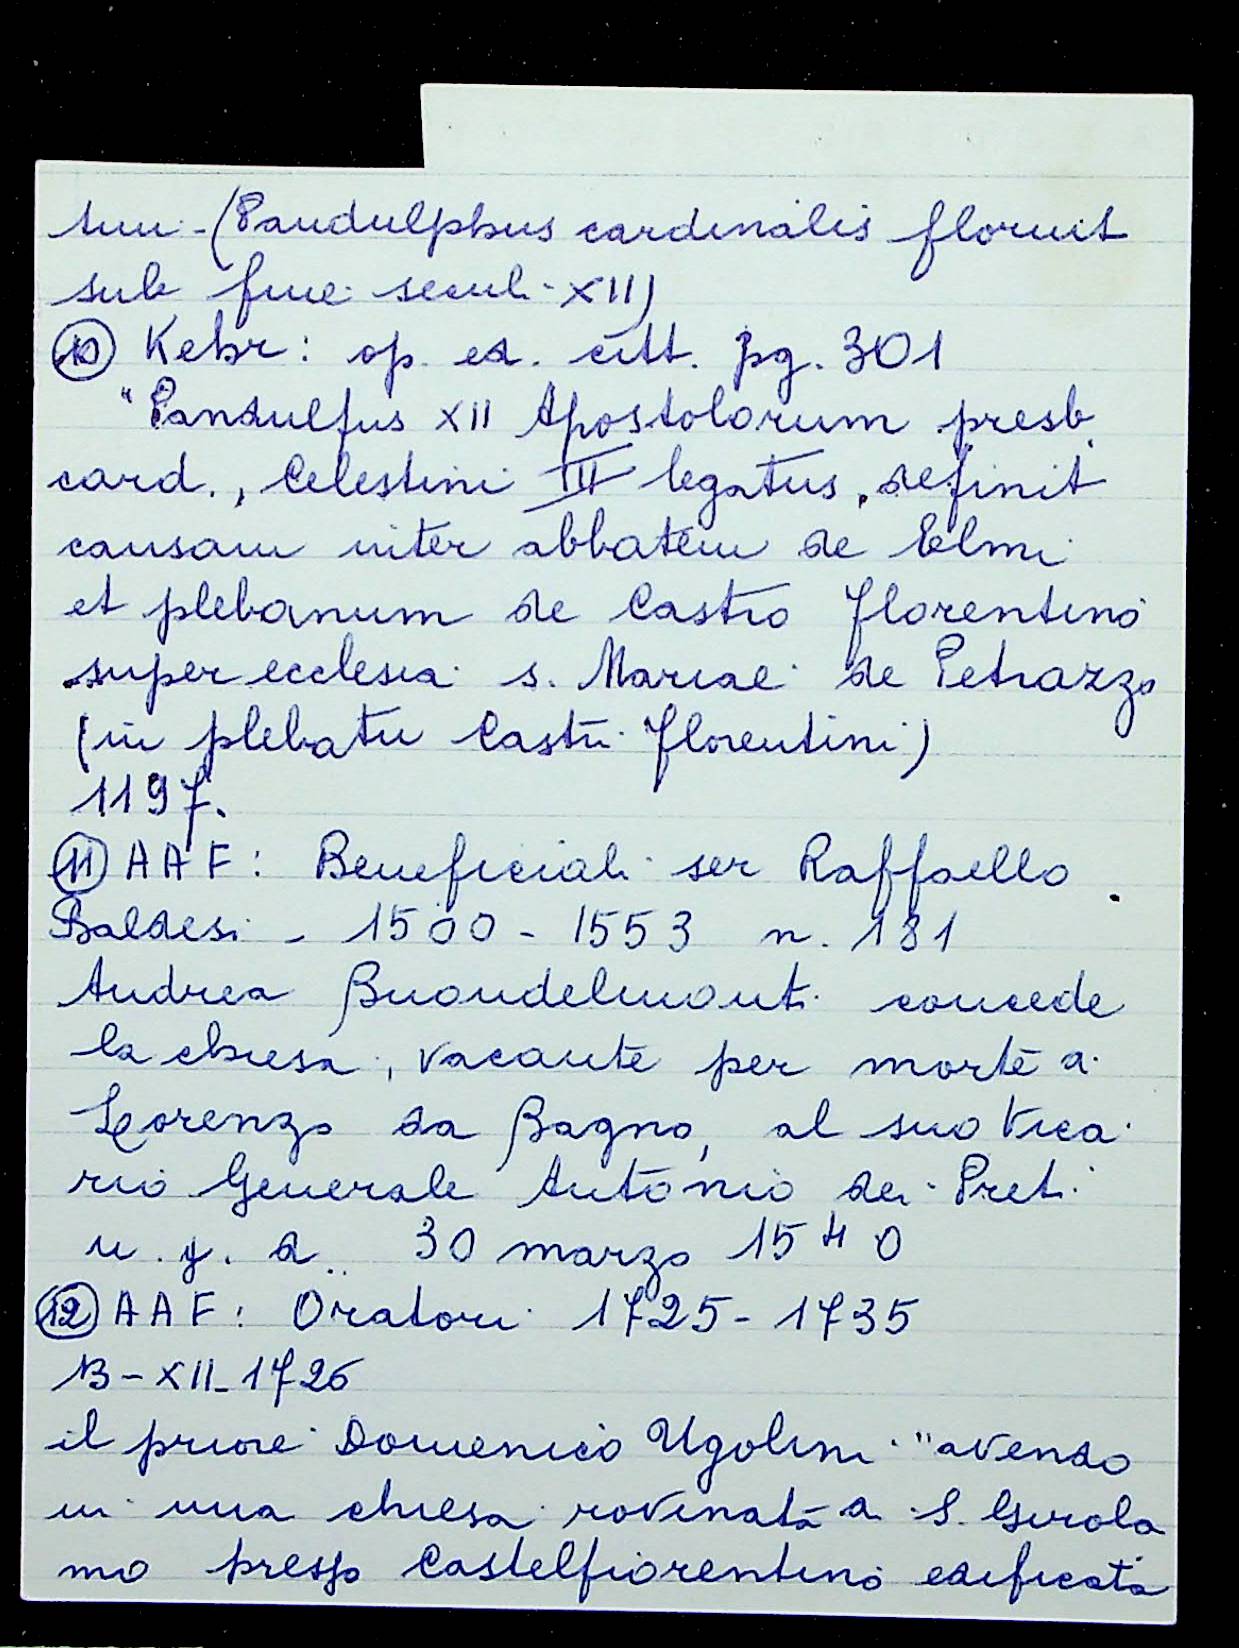 tum - (Pandulphus cardinalis floruit
sub fine seculi XII)
10 Kehr: op. ed. citt. pg. 301
"Pandulfus XII Apostolorum presb.
card., Celestini III legatus, definit
causam inter abbatem de Elmi
et plebanum de Castro Florentino
super ecclesia s. Mariae de Petrazzo
(in plebatu Castri Florentini)
1197.
11 AAF: Beneficiali ser Raffaello
Baldesi - 1500 - 1553 n. 181
Andrea Buondelmonti concede
la chiesa, vacante per morte a
Lorenzo da Bagno, al suo Vica
rio Generale Antonio dei Preti
u. j. d. 30 marzo 1540
12 AAF: Oratori 1725 - 1735
13 - XII - 1726
il priore Domenico Ugolini "avendo
in una chiesa rovinata a S. Girola
mo presso Castelfiorentino edificata